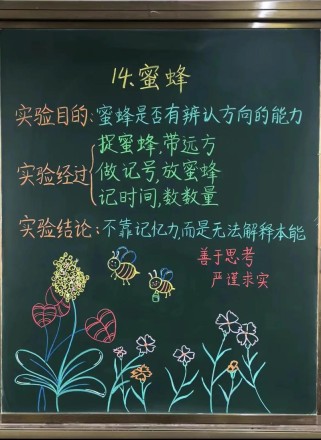 14.蜜蜂
实验目的:蜜蜂是否有辨认方向的能力
捉蜜蜂,带远方
实验经过 做记号,放蜜蜂
记时间,数数量
实验结论:不靠记忆力,而是无法解释本能
善于思考
严谨求实